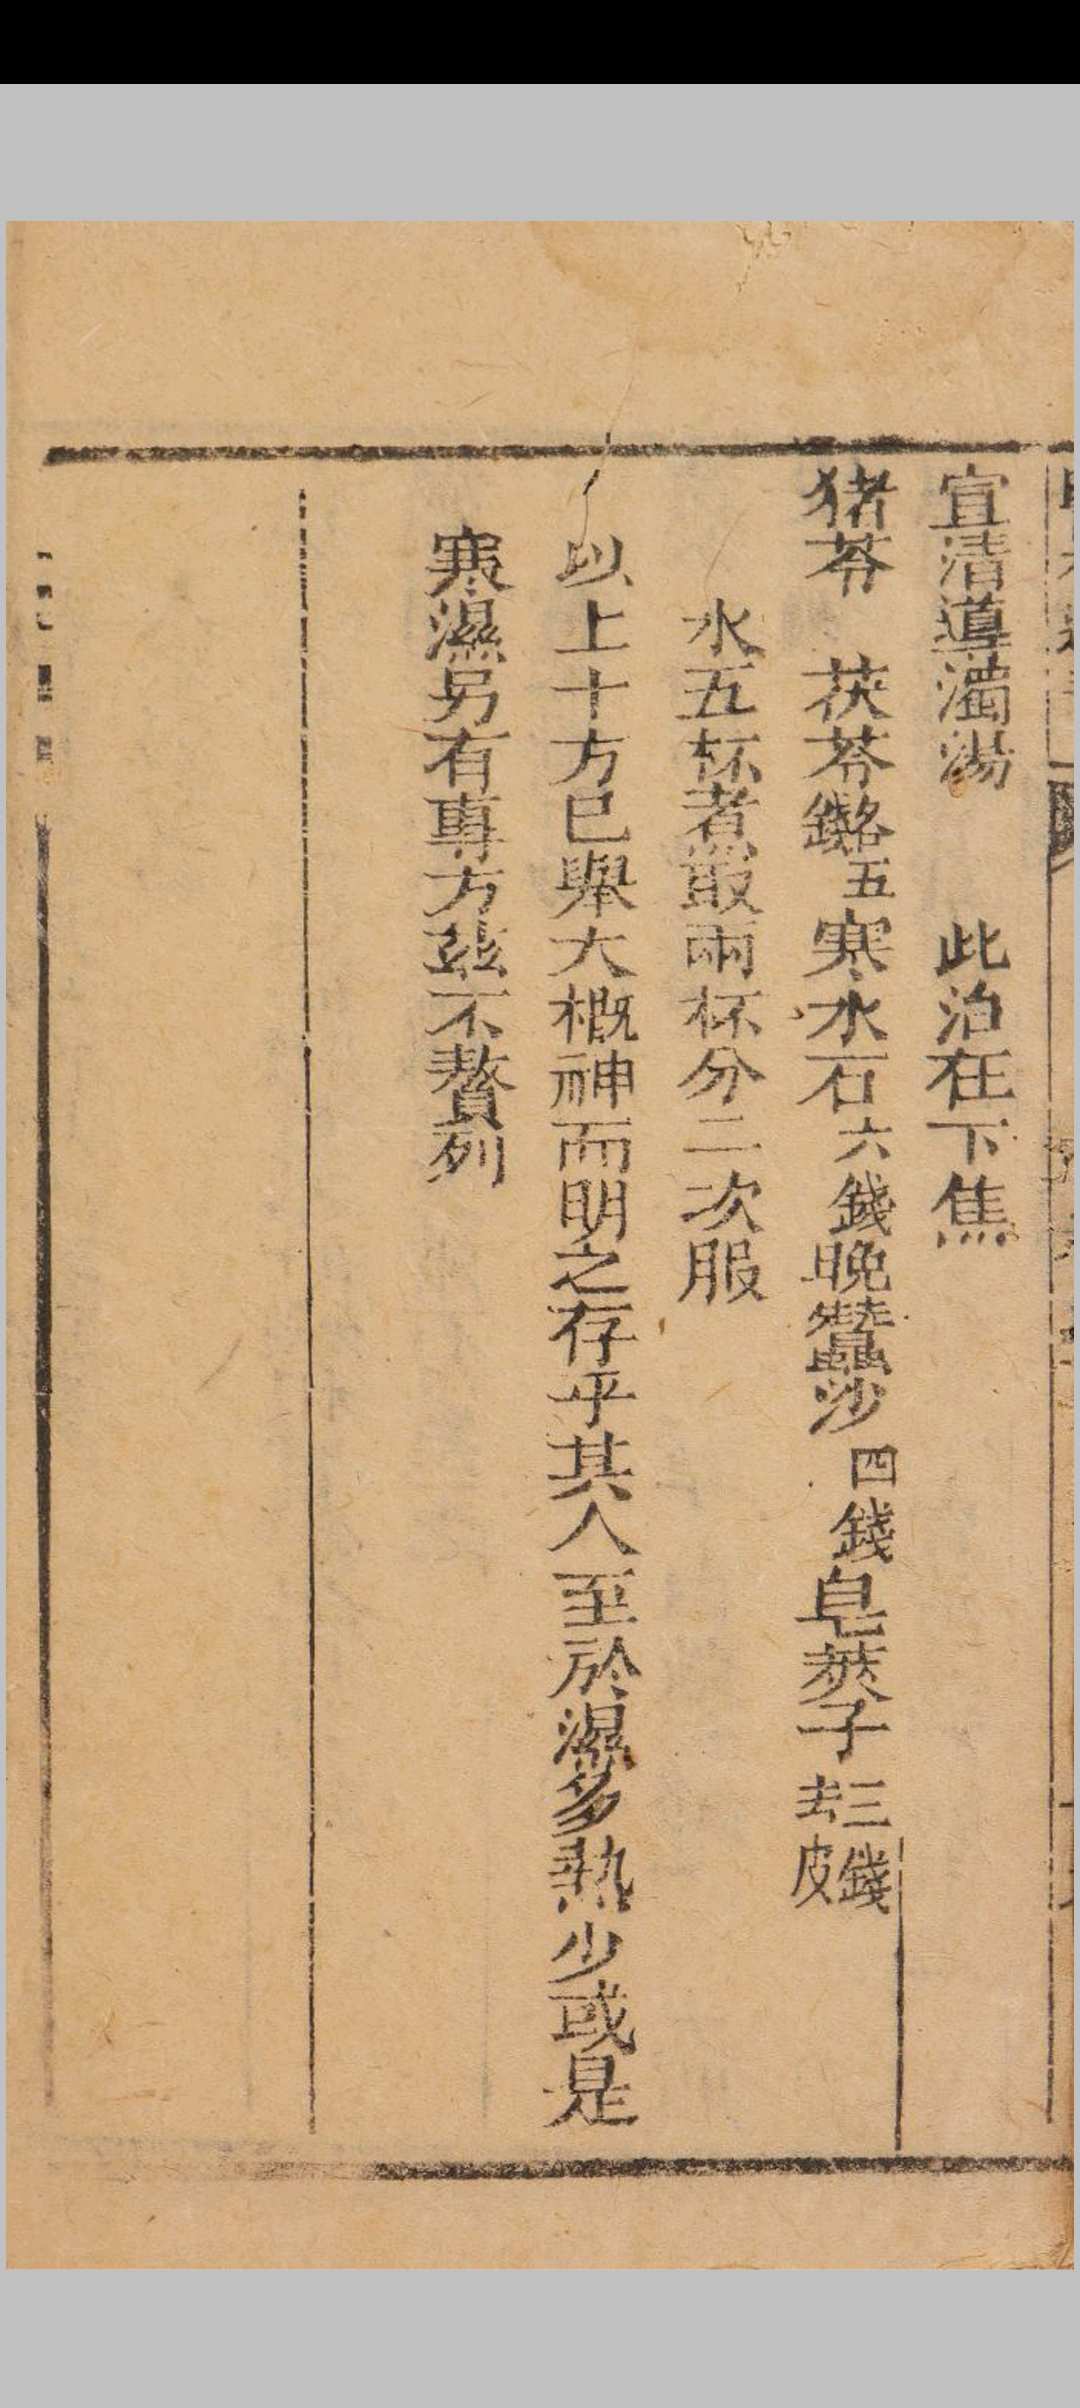 宣清導濁湯　此治在下焦
猪苓　茯苓各五錢寒水石六錢晚蠶沙四錢皂莢子三錢去皮
水五杯煮取兩杯分二次服
以上十方已舉大概神而明之存乎其人至於濕多熱少或是
寒濕另有專方茲不贅列